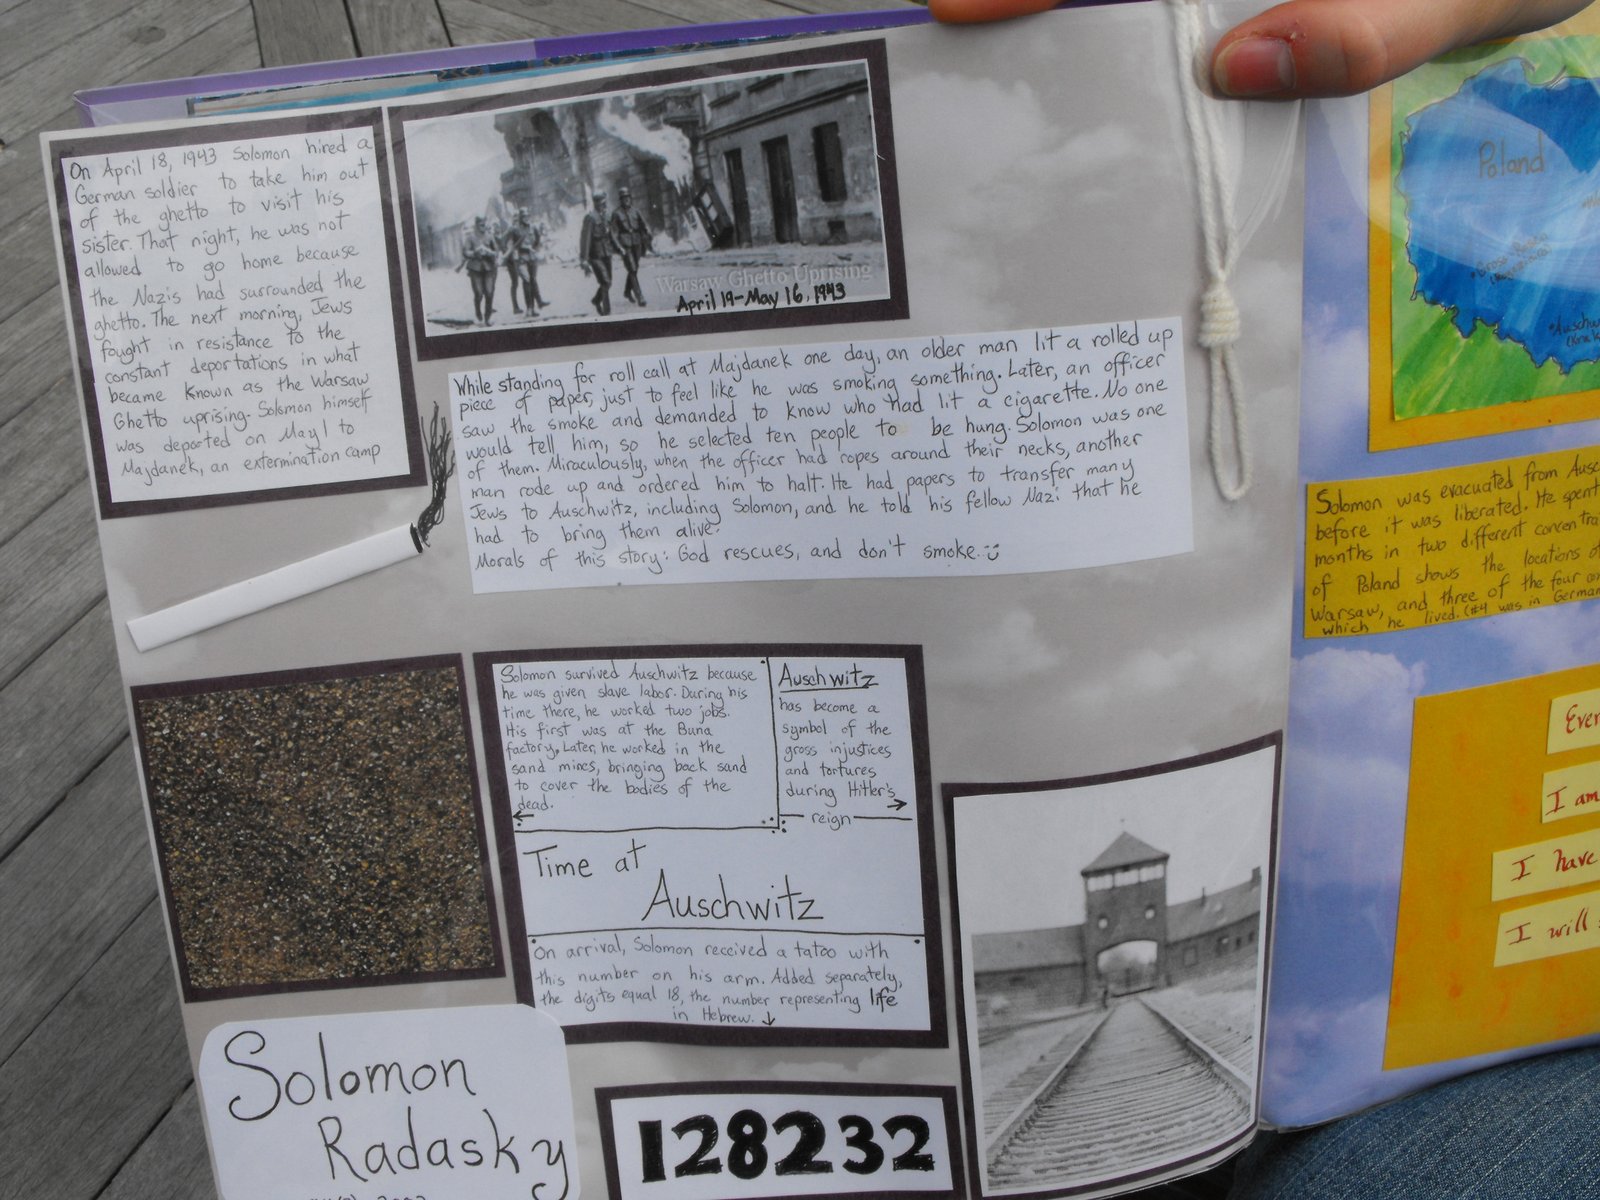 On April 18, 1943 Solomon hired a
German soldier to take him out
of the ghetto to visit his
sister. That night, he was not
allowed to go home because
the Nazis had surrounded the
ghetto. The next morning, Jews
fought in resistance to the
constant deportations in what
became known as the Warsaw
Ghetto uprising. Solomon himself
was deported on May 1 to
Majdanek, an extermination camp
Warsaw Ghetto Uprising
April 19-May 16, 1943
While standing for roll call at Majdanek one day, an older man lit a rolled up
piece of paper, just to feel like he was smoking something. Later, an officer
saw the smoke and demanded to know who had lit a cigarette. No one
would tell him, so he selected ten people to be hung. Solomon was one
of them. Miraculously, when the officer had ropes around their necks, another
man rode up and ordered him to halt. He had papers to transfer many
Jews to Auschwitz, including Solomon, and he told his fellow Nazi that he
had to bring them alive.
Morals of this story: God rescues, and don't smoke.
Solomon survived Auschwitz because
he was given slave labor. During his
time there, he worked two jobs.
His first was at the Buna
factory. Later, he worked in the
sand mines, bringing back sand
to cover the bodies of the
dead.
Auschwitz
has become a
symbol of the
gross injustices
and tortures
during Hitler's
reign
Time at
Auschwitz
On arrival, Solomon received a tatoo with
this number on his arm. Added separately,
the digits equal 18, the number representing life
in Hebrew.
Solomon
Radasky
128232
Poland
Solomon was evacuated from
before it was liberated. He spent
months in two different
of Poland shows the locations of
Warsaw, and three of the four
which he lived. (#4 was in
I am
I have
I will